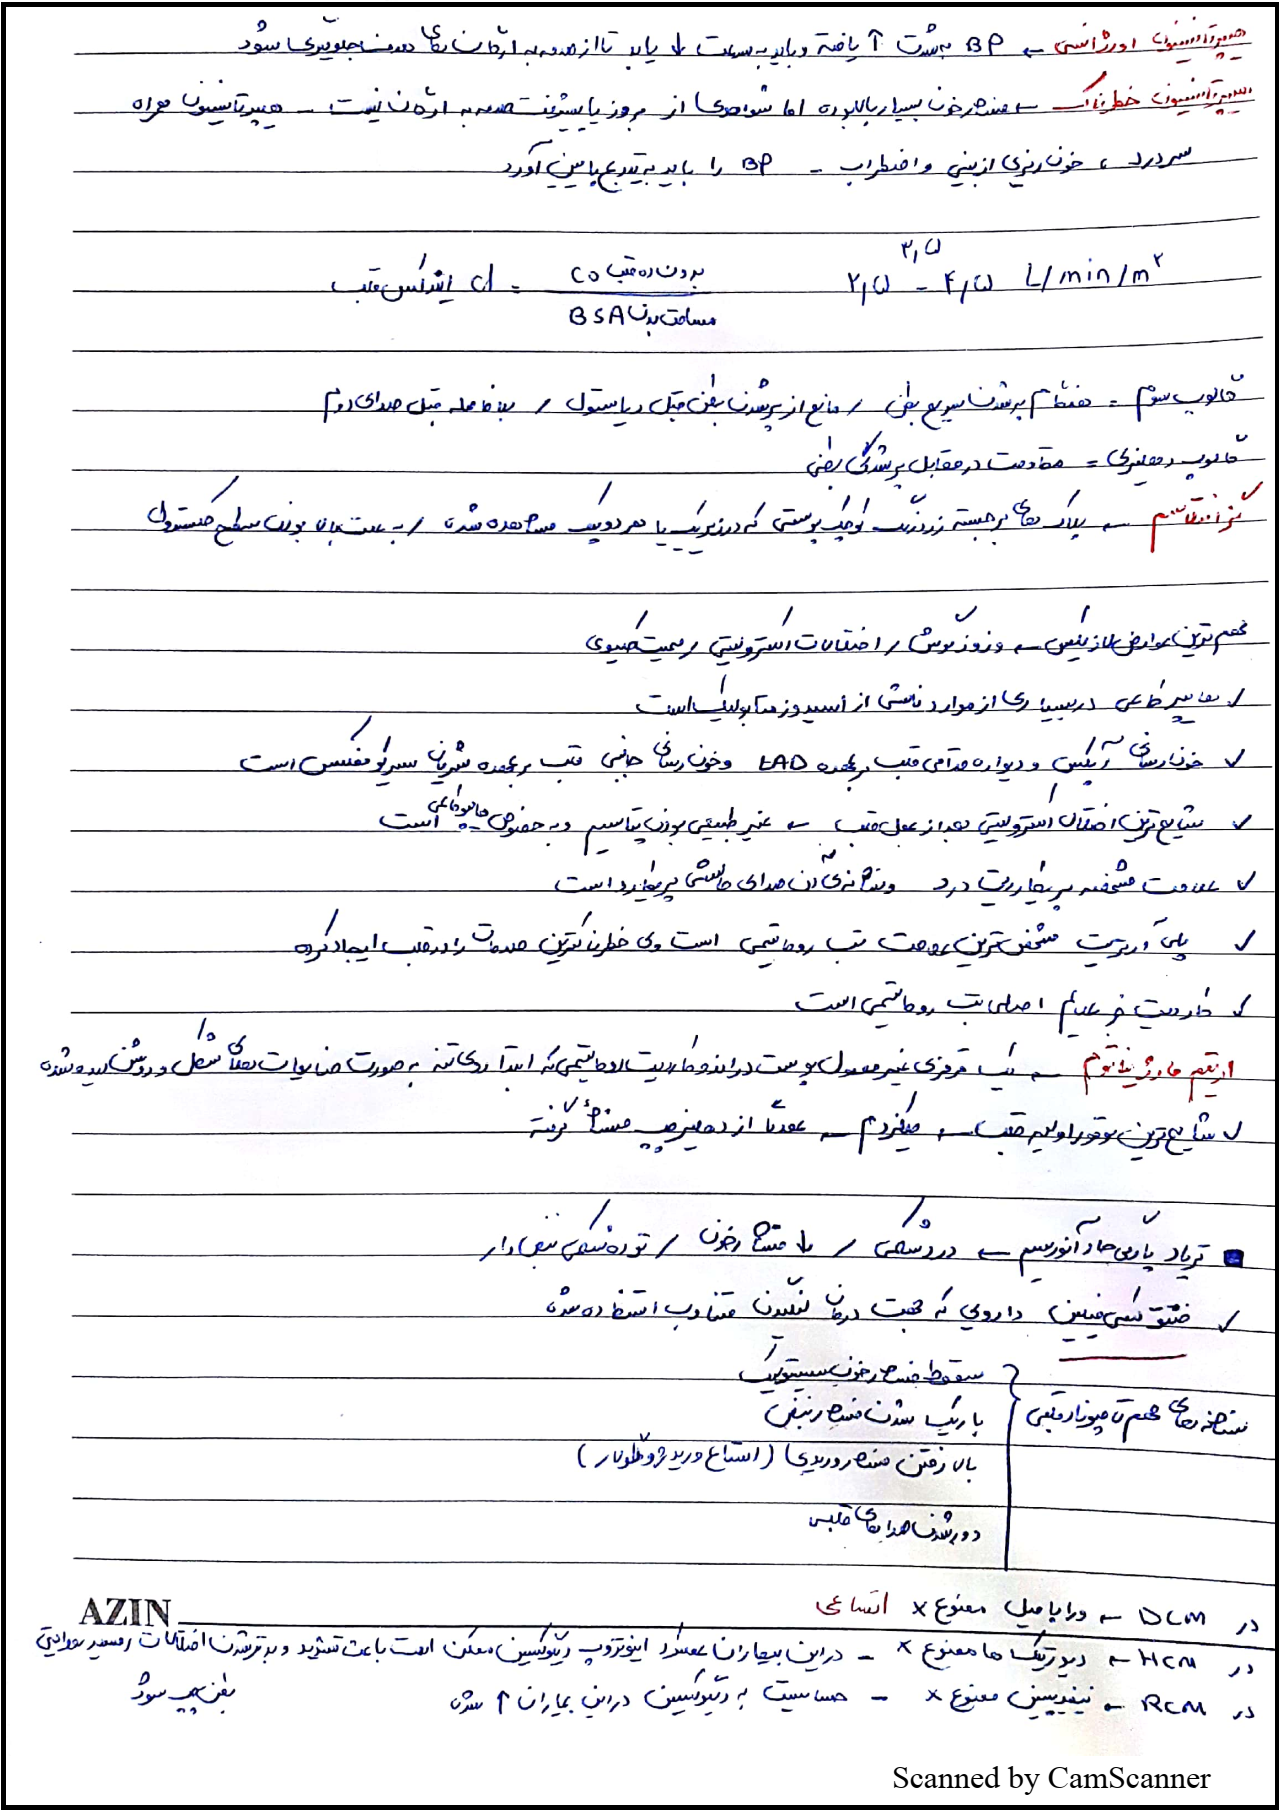 هیپرتانسیون اورژانسی ← BP به شدت ↑ یافته و باید به سرعت ↓ یابد تا از صدمه به ارگان های هدف جلوگیری شود
هیپرتانسیون خطرناک ← فشار خون بسیار بالا بوده اما شواهدی از بروز یا پیشرفت صدمه به ارگان نیست - هیپرتانسیون همراه
سردرد ، خون ریزی از بینی و اضطراب - BP را باید به تدریج پایین آورد
ایندکس قلب CI = برون ده قلب CO / مساحت بدن BSA ۲٫۵ - ۴٫۵ L/min/m²
۳٫۵
گالوپ سوم = هنگام پر شدن سریع بطنی / مانع از پر شدن بطن قبل دیاستول / بلافاصله قبل صدای دوم
گالوپ دهلیزی = مقاومت در مقابل پرشدگی بطنی
گزانتلاسم ← پلاک های برجسته زرد رنگ کوچک پوستی که در زیر یک یا هر دو پلک مشاهده شده / به علت بالا بودن سطح کلسترول
مهم ترین عوارض لازیکس ← وزوز گوش / اختلالات الکترولیتی / سمیت کلیوی
✓ هایپرکالمی در بسیاری از موارد ناشی از اسیدوز متابولیک است
✓ خون رسانی آپکس و دیواره قدامی قلب بر عهده LAD و خون رسانی جانبی قلب بر عهده شریان سیرکومفلکس است
✓ شایع ترین اختلال الکترولیتی بعد از عمل قلب ← غیر طبیعی بودن پتاسیم و به خصوص هایپوکالمی است
✓ علامت مشخصه پریکاردیت درد و نشانه ی آن صدای مالشی پریکارد است
✓ پلی آرتریت مشخص ترین علامت تب روماتیسمی است ولی خطرناکترین صدمات را در قلب ایجاد کرده
✓ کاردیت جزء علایم اصلی تب روماتیسمی است
اریتم مارژیناتوم ← یک قرمزی غیر معمول پوست در اندوکاردیت روماتیسمی که ابتدا روی تنه به صورت ضایعات هلالی شکل و روشن دیده شده
✓ شایع ترین تومور اولیه قلب ← میگزدم ← عمدتا از دهلیز چپ منشأ گرفته
■ تریاد پارگی حاد آنوریسم ← درد شکمی / ↓ فشار خون / توده شکمی نبض دار
✓ پنتوکسی فیلین دارویی که جهت درمان لنگیدن متناوب استفاده شده
نشانه های مهم تامپوناد قلبی
سقوط فشار خون سیستولیک
باریک شدن فشار نبض
بالا رفتن فشار وریدی (اتساع ورید ژوگولار)
دور شدن صداهای قلبی
در DCM ← وراپامیل ممنوع × اتساعی
AZIN
در HCM ← دیورتیک ها ممنوع × - در این بیماران عملکرد اینوتروپ دیگوکسین ممکن است باعث تشدید و بدتر شدن اختلالات مسیر خروجی
بطن چپ شود
در RCM ← نیفیدیپین ممنوع × - حساسیت به دیگوکسین در این بیماران ↑ شده
Scanned by CamScanner